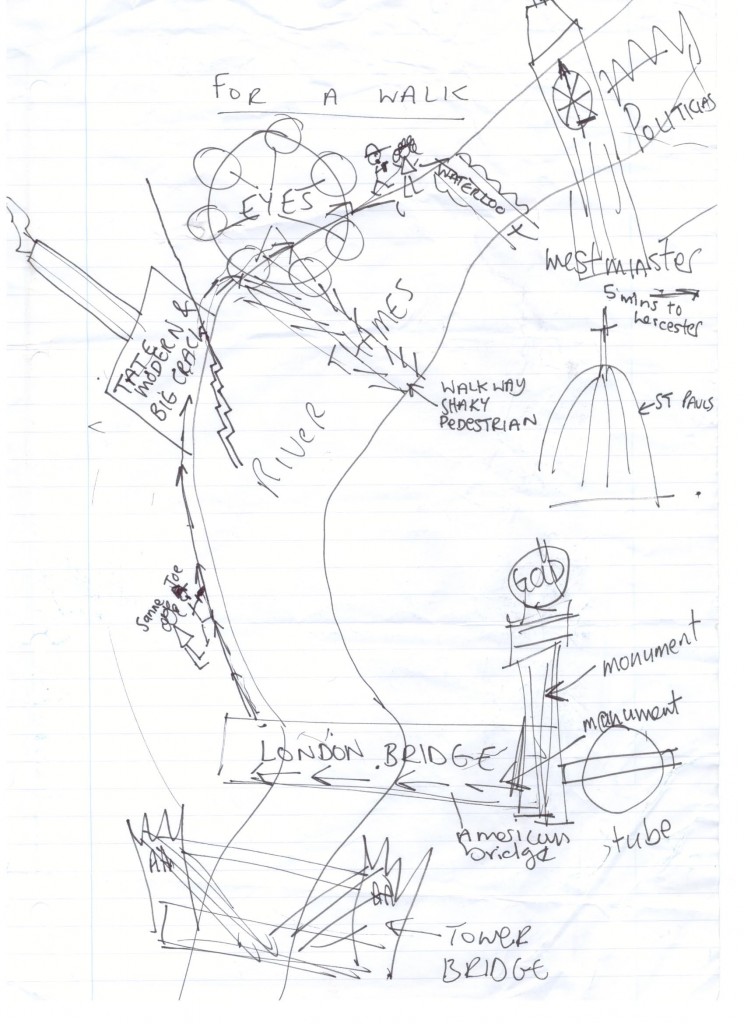 FOR A WALK
EYES
WATERLOO
POLITICIAS
westminaster
5 mins to
Leicester
TATE
MODERN &
BIG CRACK
RIVER
WALKWAY
SHAKY
PEDESTRIAN
ST PAULS
Sanne Joe
GOLD
monument
monument
LONDON BRIDGE
American
bridge
tube
TOWER
BRIDGE